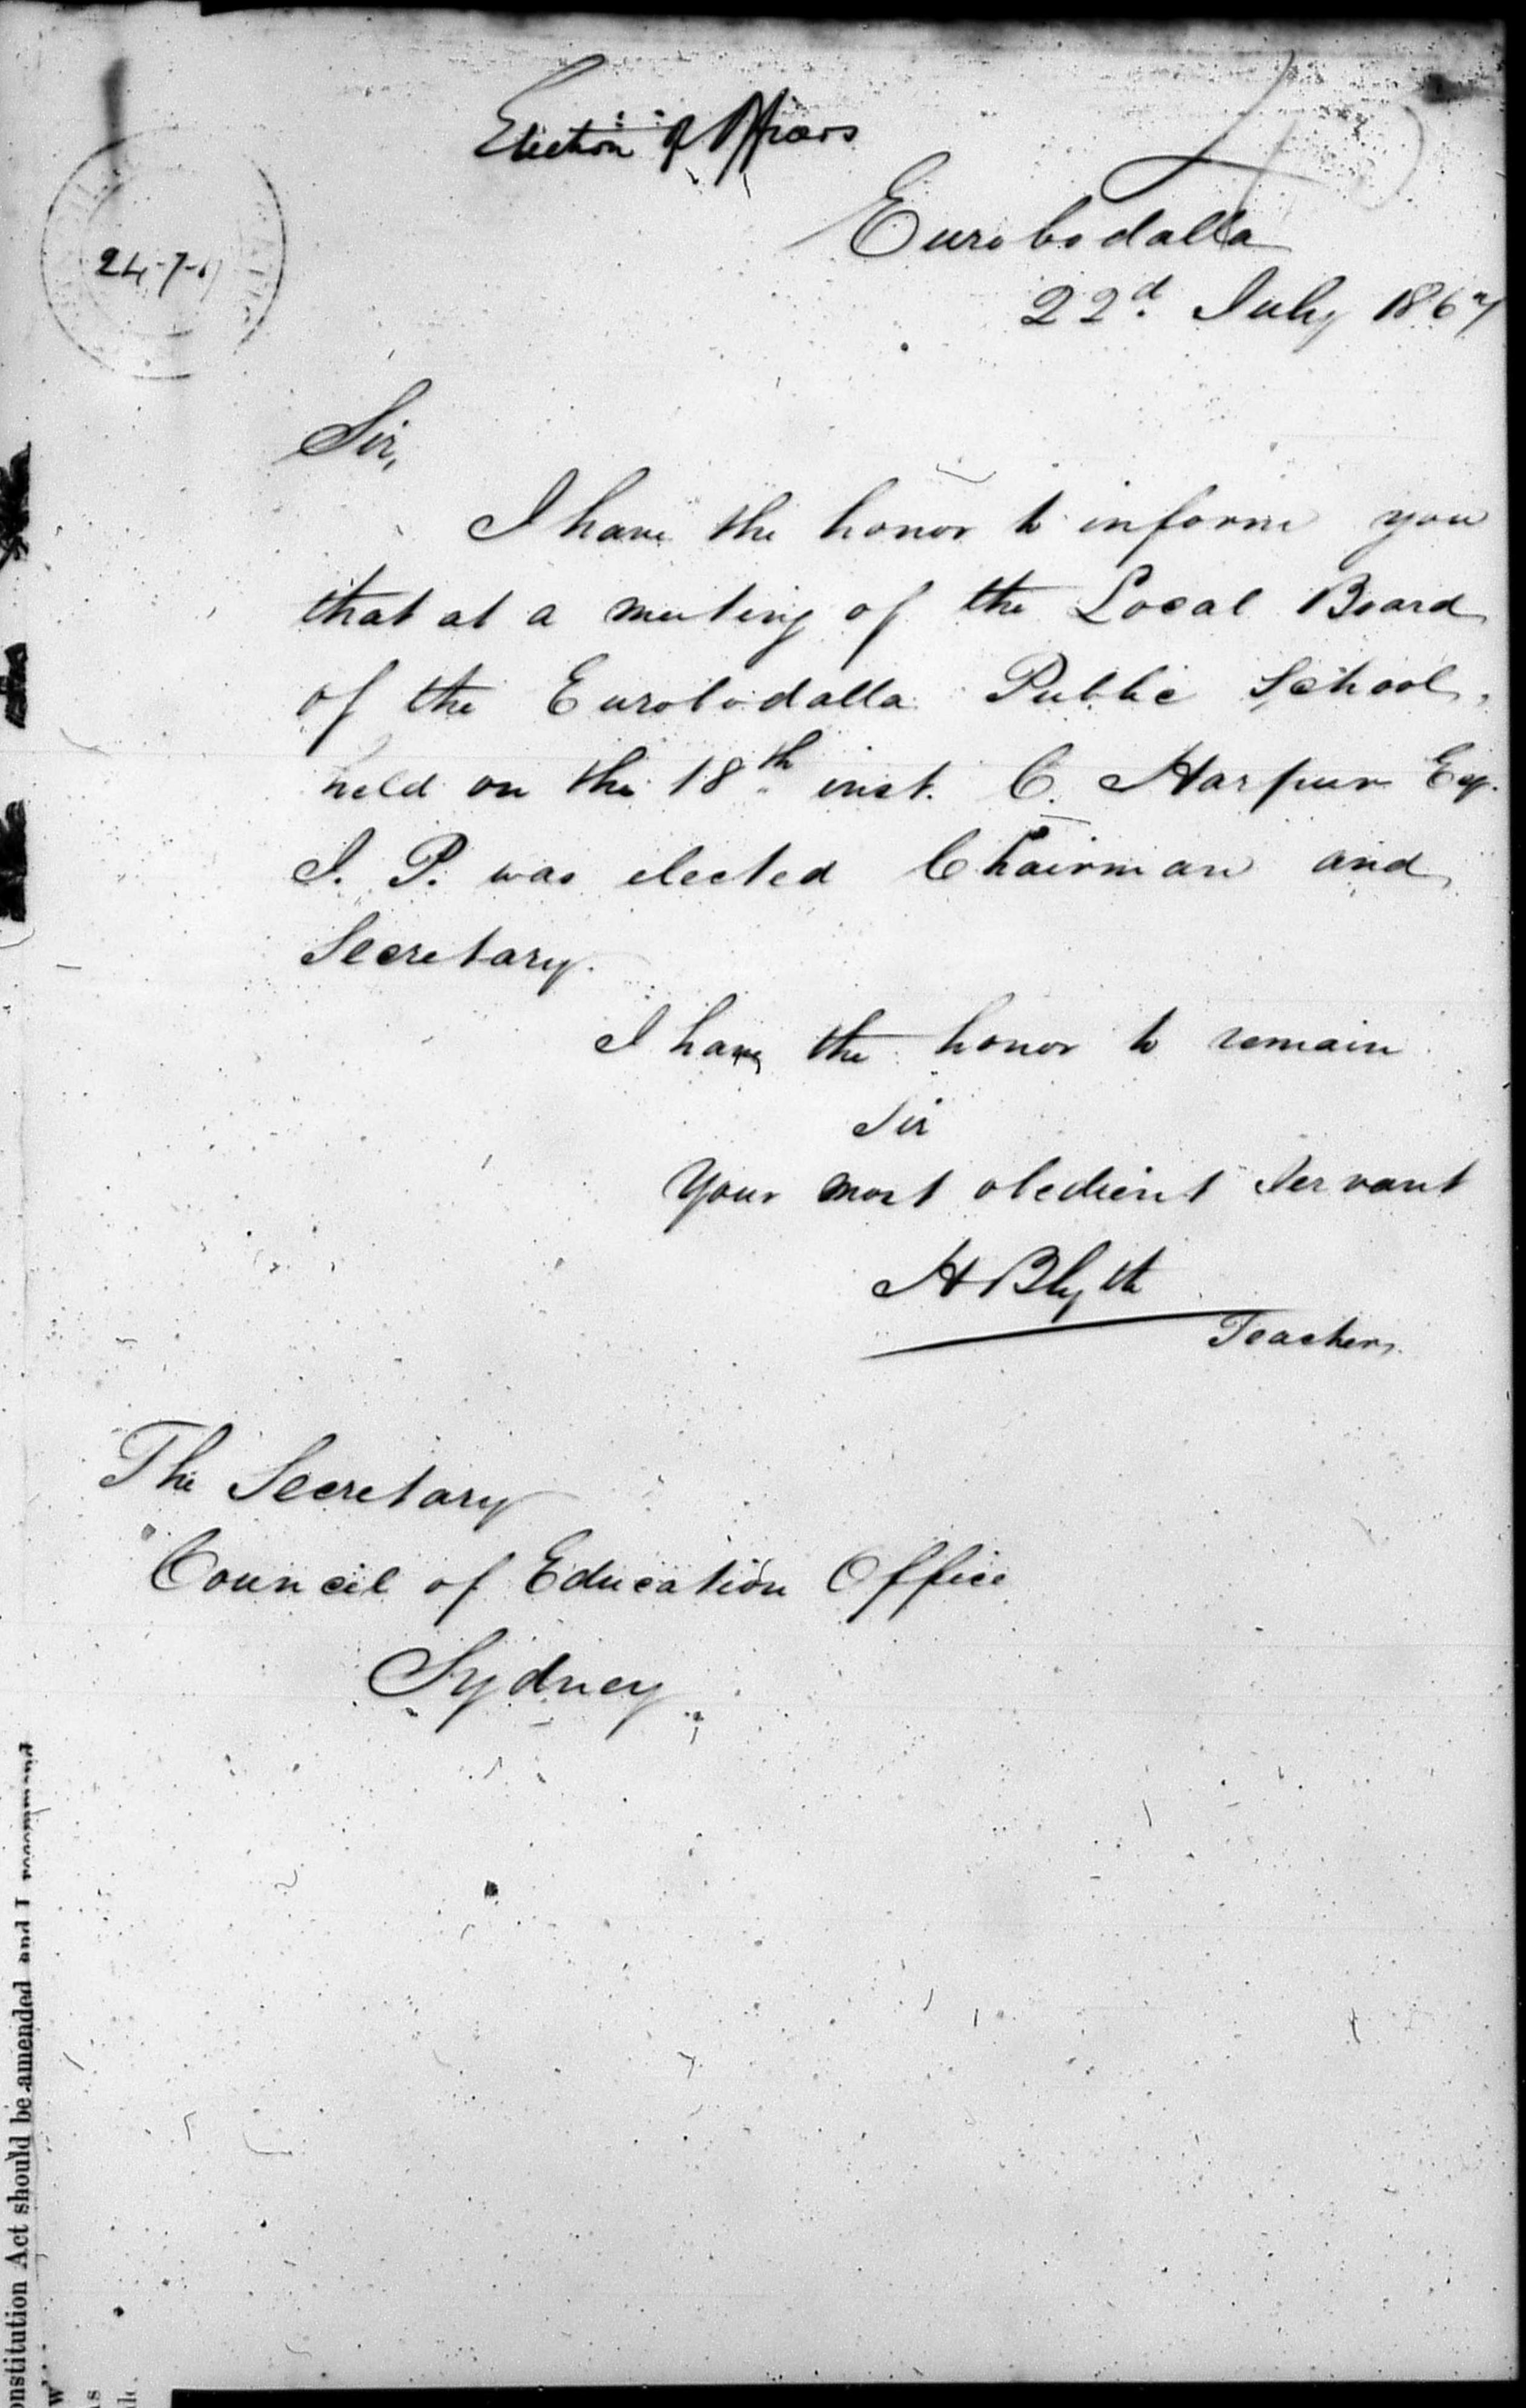 Election of Officers
Eurobodalla
22d. July 1867
24-7-67
Sir,
I have the honor to inform you
that at a meeting of the Local Board
of the Eurobodalla Public School,
held on the 18th inst. C. Harpur Esq.
J. P. was elected Chairman and
Secretary.
I have the honor to remain
Sir
Your most obedient Servant
H Blyth
Teacher.
The Secretary
Council of Education Office
Sydney
onstitution Act should be amended and I recommend